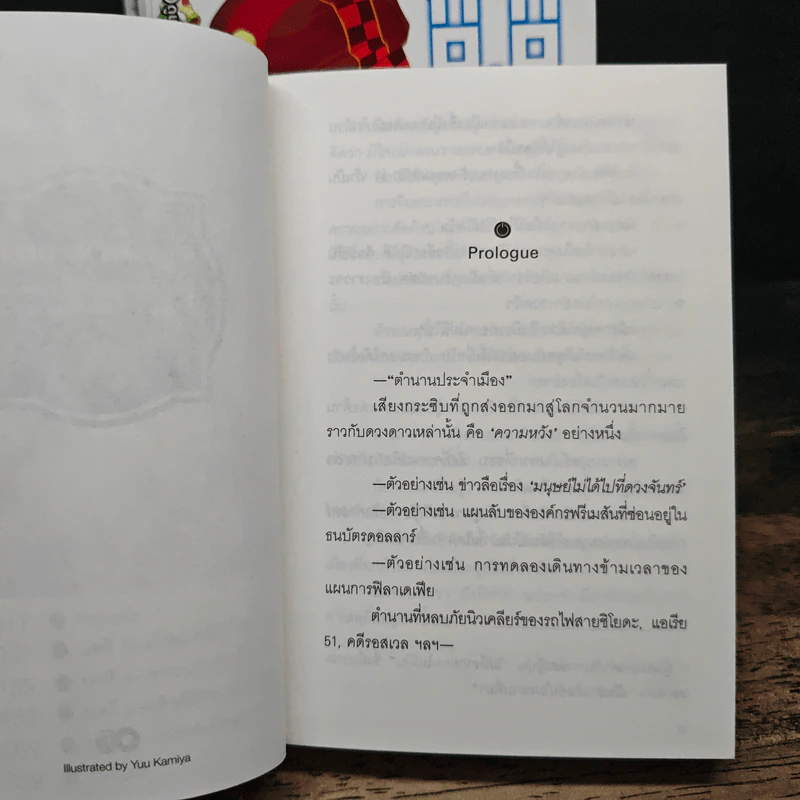 Prologue
—“ตำนานประจำเมือง”
เสียงกระซิบที่ถูกส่งออกมาสู่โลกจำนวนมากมาย
ราวกับดวงดาวเหล่านั้น คือ ‘ความหวัง’ อย่างหนึ่ง
—ตัวอย่างเช่น ข่าวลือเรื่อง ‘มนุษย์ไม่ได้ไปที่ดวงจันทร์’
—ตัวอย่างเช่น แผนลับขององค์กรฟรีเมสันที่ซ่อนอยู่ใน
ธนบัตรดอลลาร์
—ตัวอย่างเช่น การทดลองเดินทางข้ามเวลาของ
แผนการฟิลาเดเฟีย
ตำนานที่หลบภัยนิวเคลียร์ของรถไฟสายชิโยดะ, แอเรีย
51, คดีรอสเวล ฯลฯ—
Illustrated by Yuu Kamiya